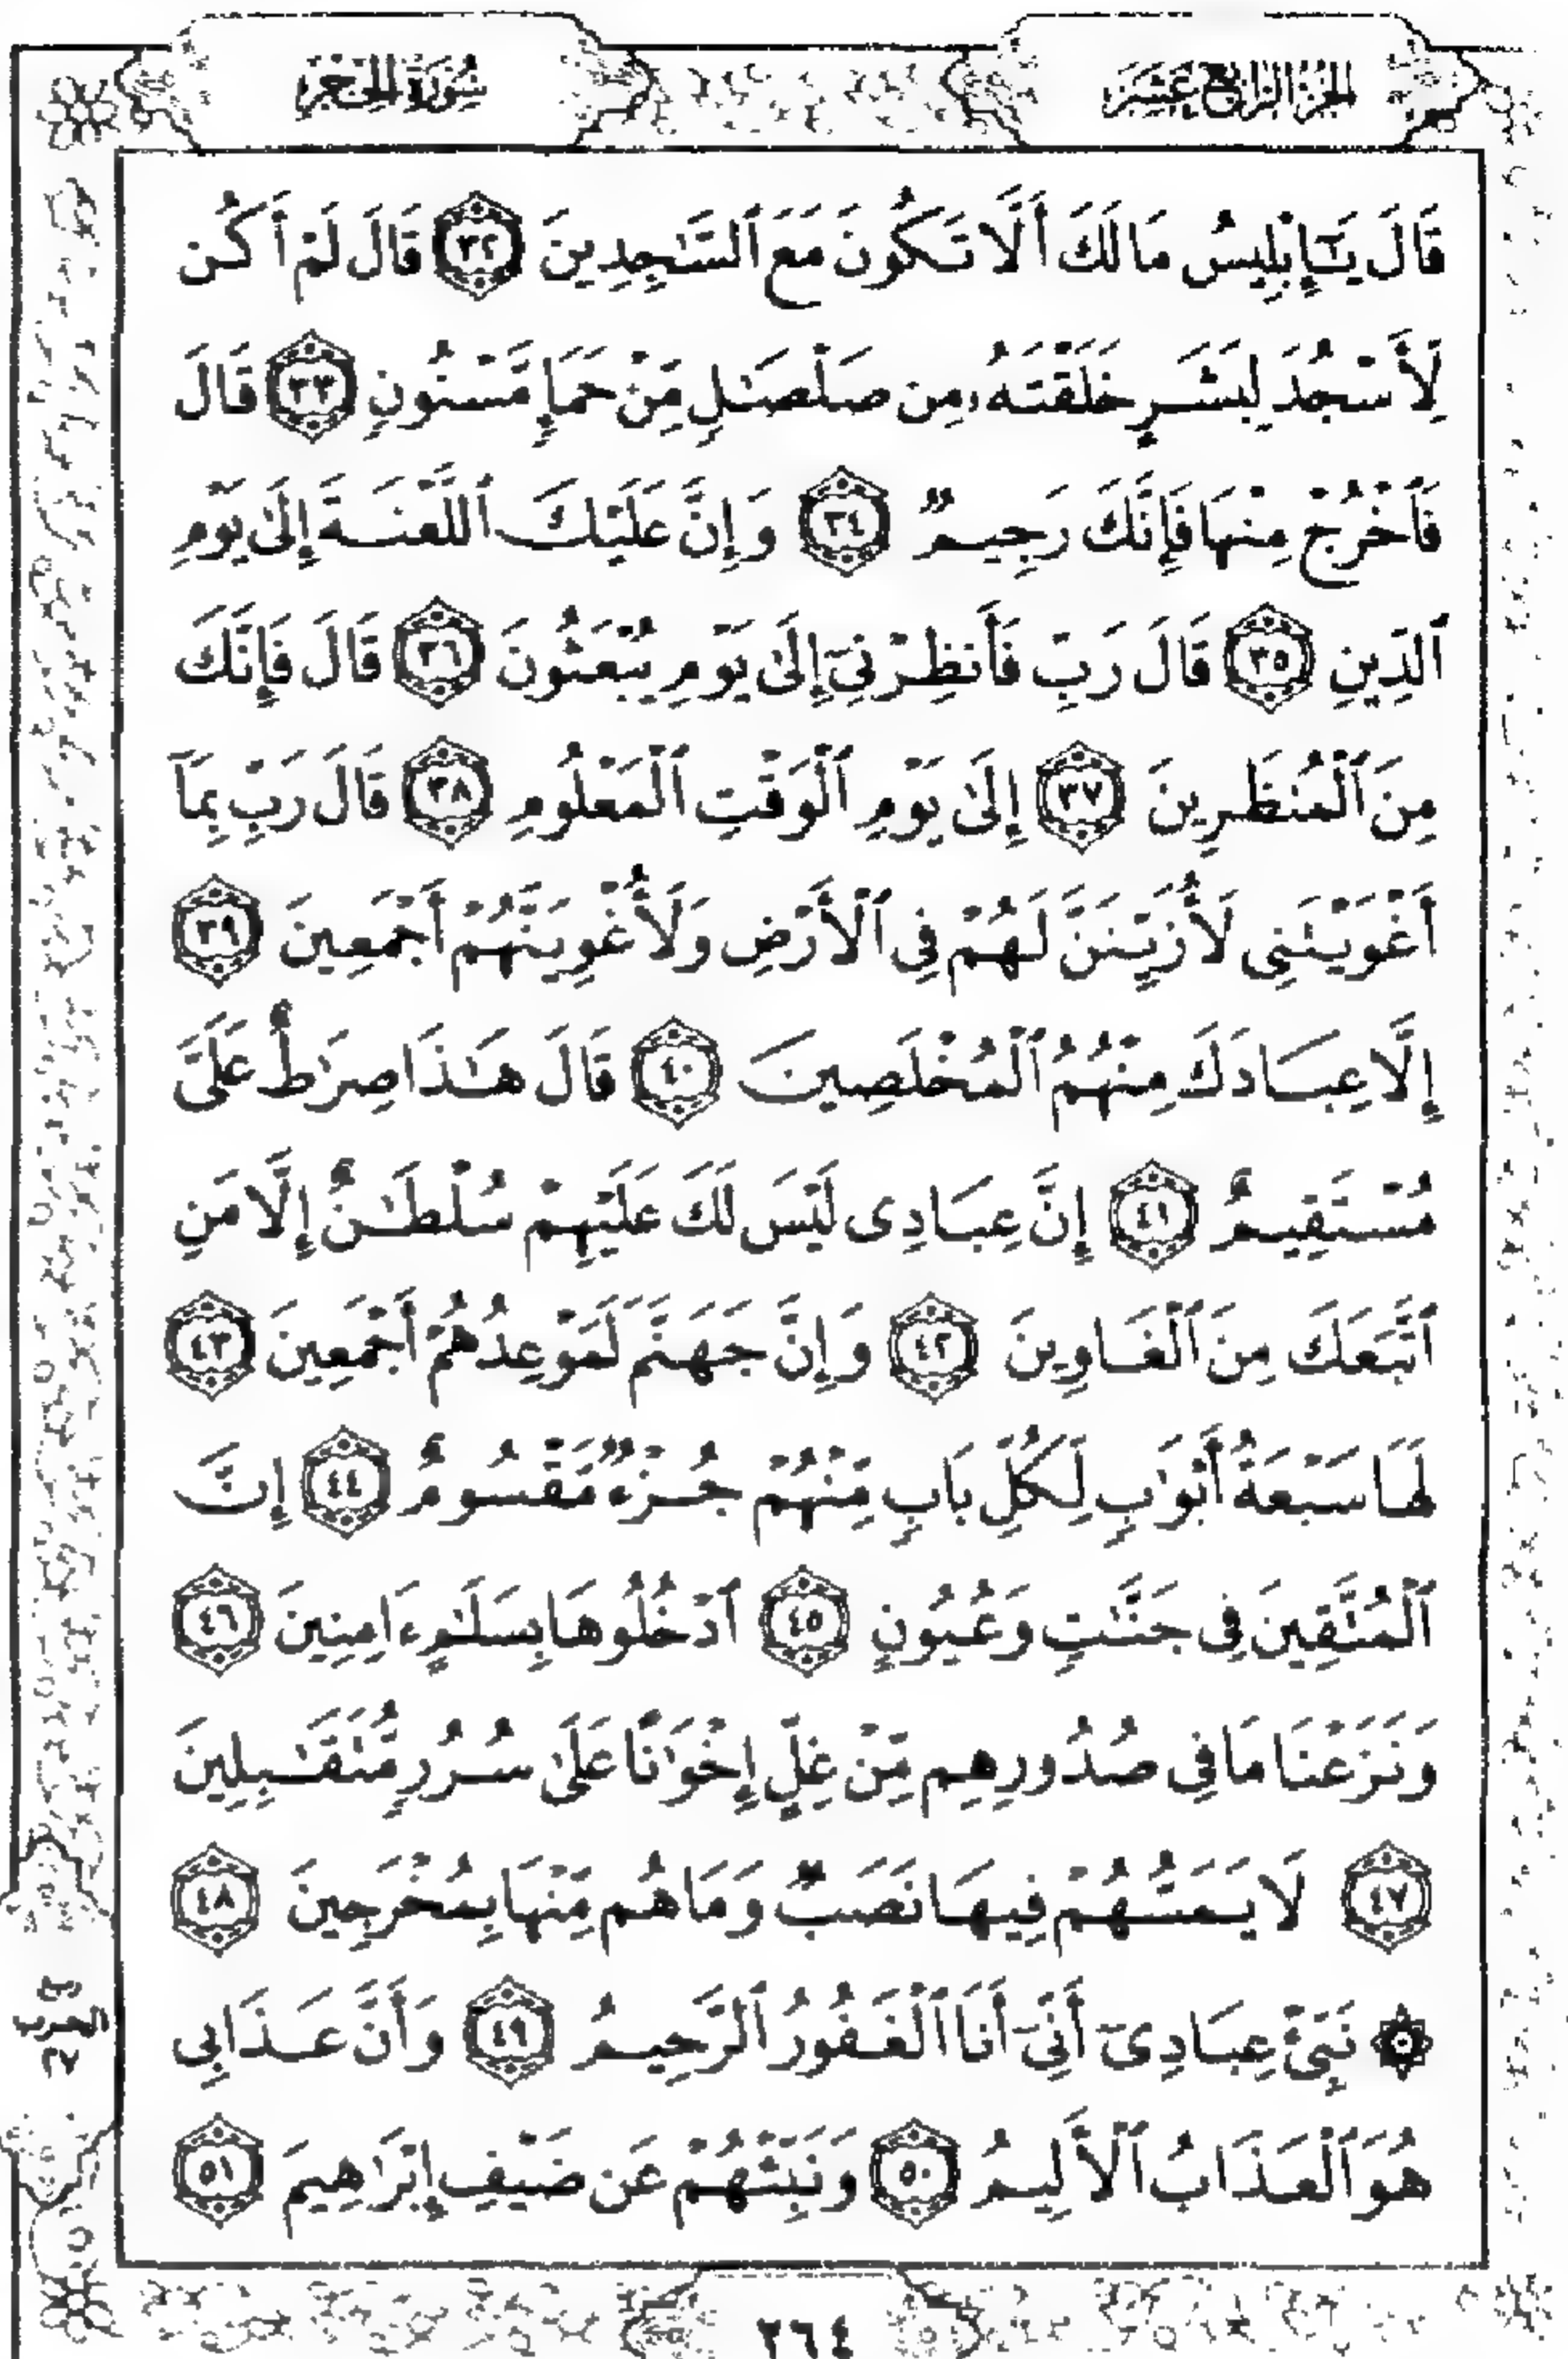 الجزء الرابع عشر
سورة الحجر
قَالَ يَـٰٓإِبْلِيسُ مَا لَكَ أَلَّا تَكُونَ مَعَ ٱلسَّـٰجِدِينَ ٣٢ قَالَ لَمْ أَكُن
لِّأَسْجُدَ لِبَشَرٍ خَلَقْتَهُۥ مِن صَلْصَـٰلٍ مِّنْ حَمَإٍ مَّسْنُونٍ ٣٣ قَالَ
فَٱخْرُجْ مِنْهَا فَإِنَّكَ رَجِيمٌ ٣٤ وَإِنَّ عَلَيْكَ ٱللَّعْنَةَ إِلَىٰ يَوْمِ
ٱلدِّينِ ٣٥ قَالَ رَبِّ فَأَنظِرْنِىٓ إِلَىٰ يَوْمِ يُبْعَثُونَ ٣٦ قَالَ فَإِنَّكَ
مِنَ ٱلْمُنظَرِينَ ٣٧ إِلَىٰ يَوْمِ ٱلْوَقْتِ ٱلْمَعْلُومِ ٣٨ قَالَ رَبِّ بِمَآ
أَغْوَيْتَنِى لَأُزَيِّنَنَّ لَهُمْ فِى ٱلْأَرْضِ وَلَأُغْوِيَنَّهُمْ أَجْمَعِينَ ٣٩
إِلَّا عِبَادَكَ مِنْهُمُ ٱلْمُخْلَصِينَ ٤٠ قَالَ هَـٰذَا صِرَٰطٌ عَلَىَّ
مُسْتَقِيمٌ ٤١ إِنَّ عِبَادِى لَيْسَ لَكَ عَلَيْهِمْ سُلْطَـٰنٌ إِلَّا مَنِ
ٱتَّبَعَكَ مِنَ ٱلْغَاوِينَ ٤٢ وَإِنَّ جَهَنَّمَ لَمَوْعِدُهُمْ أَجْمَعِينَ ٤٣
لَهَا سَبْعَةُ أَبْوَٰبٍ لِّكُلِّ بَابٍ مِّنْهُمْ جُزْءٌ مَّقْسُومٌ ٤٤ إِنَّ
ٱلْمُتَّقِينَ فِى جَنَّـٰتٍ وَعُيُونٍ ٤٥ ٱدْخُلُوهَا بِسَلَـٰمٍ ءَامِنِينَ ٤٦
وَنَزَعْنَا مَا فِى صُدُورِهِم مِّنْ غِلٍّ إِخْوَٰنًا عَلَىٰ سُرُرٍ مُّتَقَـٰبِلِينَ
٤٧ لَا يَمَسُّهُمْ فِيهَا نَصَبٌ وَمَا هُم مِّنْهَا بِمُخْرَجِينَ ٤٨
۞ نَبِّئْ عِبَادِىٓ أَنِّىٓ أَنَا ٱلْغَفُورُ ٱلرَّحِيمُ ٤٩ وَأَنَّ عَذَابِى
هُوَ ٱلْعَذَابُ ٱلْأَلِيمُ ٥٠ وَنَبِّئْهُمْ عَن ضَيْفِ إِبْرَٰهِيمَ ٥١
الحزب
٢٦٤